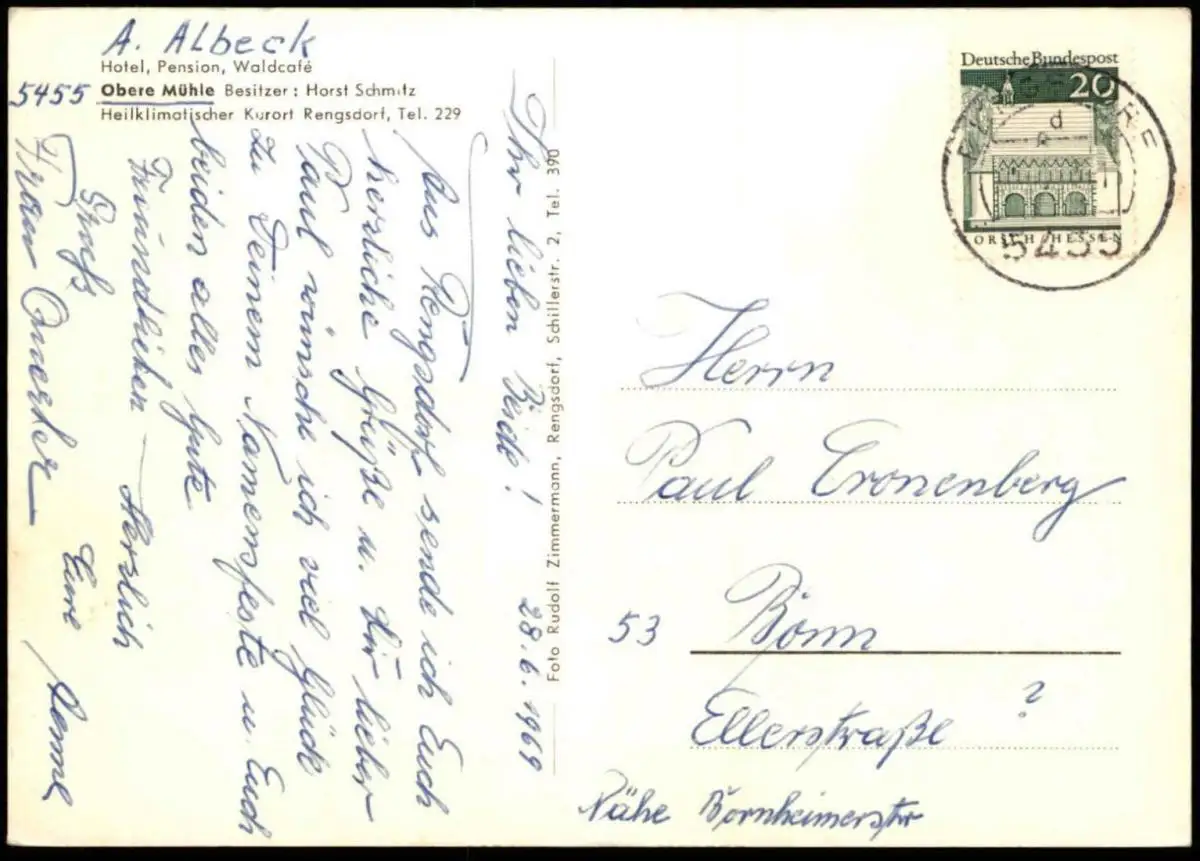 A. Albeck
Hotel, Pension, Waldcafé
5455 Obere Mühle Besitzer: Horst Schmitz
Heilklimatischer Kurort Rengsdorf, Tel. 229
28.6.1969
Ihr lieben Beide!
Aus Rengsdorf sende ich Euch
herzliche Grüße u. dir lieber
Paul wünsche ich viel Glück
zu Deinem Namensfeste u. Euch
beiden alles Gute
Freundlichen Herzlich
Gruß Eure
Frau
Foto Rudolf Zimmermann, Rengsdorf, Schillerstr. 2, Tel. 390
Deutsche Bundespost
20
ORSCH/HESSEN
d
5455
Herrn
Paul Cronenberg
53 Bonn
Ellerstraße ?
Nähe Bornheimerstr